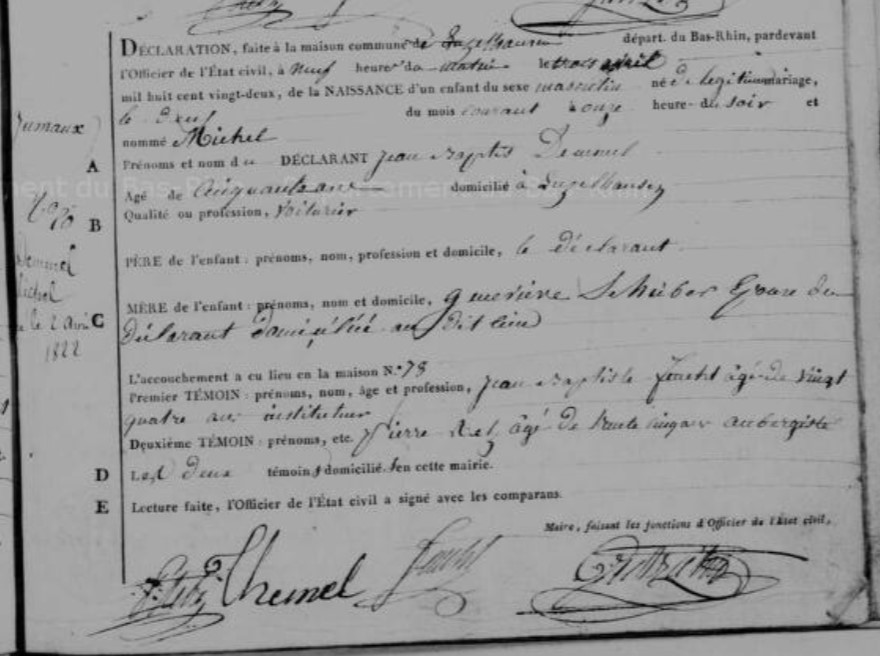 DÉCLARATION, faite à la maison commune de départ. du Bas-Rhin, pardevant
l'Officier de l'État civil, à neuf heures du matin le trois avril
mil huit cent vingt-deux, de la NAISSANCE d'un enfant du sexe masculin né de légitime mariage,
le deux du mois courant à onze heures du soir et
Jumaux
nommé Michel
A Prénoms et nom du DÉCLARANT Jean Baptis Demmel
Agé de cinquante ans domicilié à
B Qualité ou profession, Voiturier
No 70
PÈRE de l'enfant : prénoms, nom, profession et domicile, le déclarant
Demmel
Michel
MÈRE de l'enfant : prénoms, nom et domicile, Epouse du
C déclarant domiciliée au dit lieu
le 2 Avril
1822
L'accouchement a eu lieu en la maison N.° 78
Premier TÉMOIN : prénoms, nom, âge et profession, Jean Baptiste Feucht âgé de vingt
quatre ans instituteur
Deuxième TÉMOIN : prénoms, etc. Pierre âgé de trente cinq ans aubergiste
D Les deux témoins domiciliés en cette mairie.
E Lecture faite, l'Officier de l'État civil a signé avec les comparans.
Maire, faisant les fonctions d'Officier de l'État civil,
Feucht